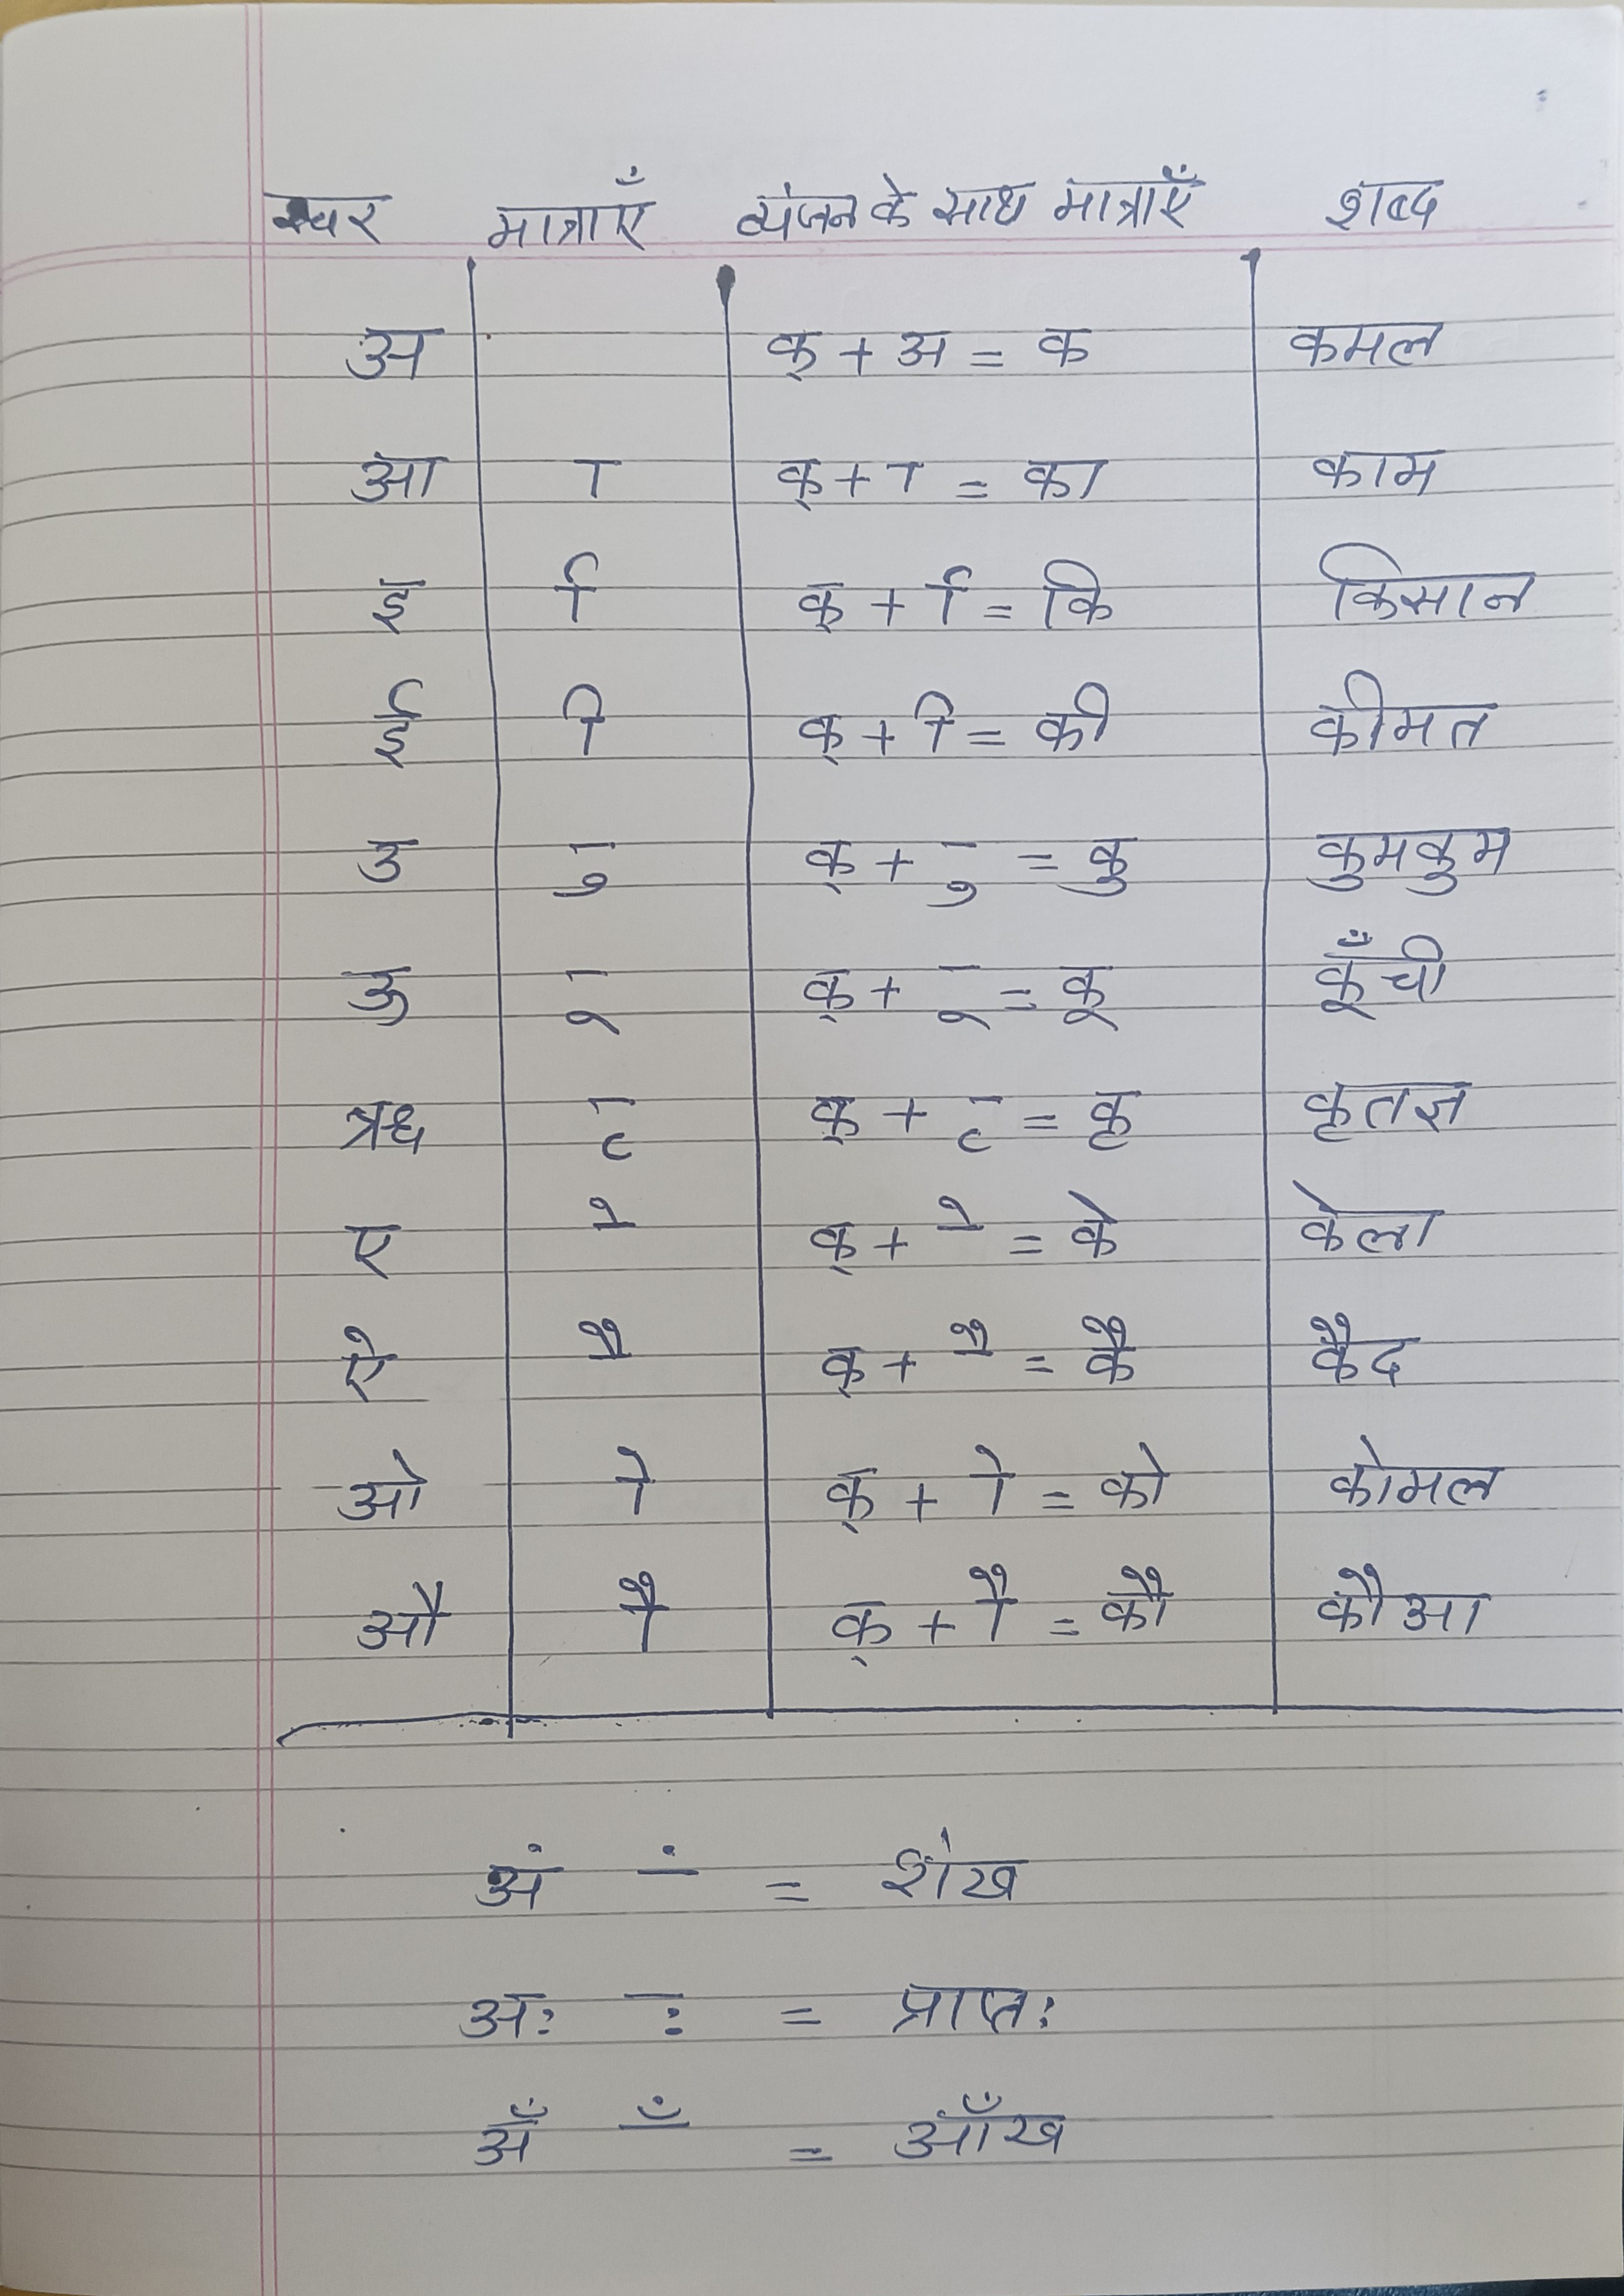 स्वर मात्राएँ व्यंजन के साथ मात्राएँ शब्द
अ क् + अ = क कमल
आ ा क् + ा = का काम
इ ि क् + ि = कि किसान
ई ी क् + ी = की कीमत
उ ु क् + ु = कु कुमकुम
ऊ ू क् + ू = कू कूँची
ऋ ृ क् + ृ = कृ कृतज्ञ
ए े क् + े = के केला
ऐ ै क् + ै = कै कैद
ओ ो क् + ो = को कोमल
औ ौ क् + ौ = कौ कौआ
अं ं = शंख
अः ः = प्राप्तः
अँ ँ = आँख